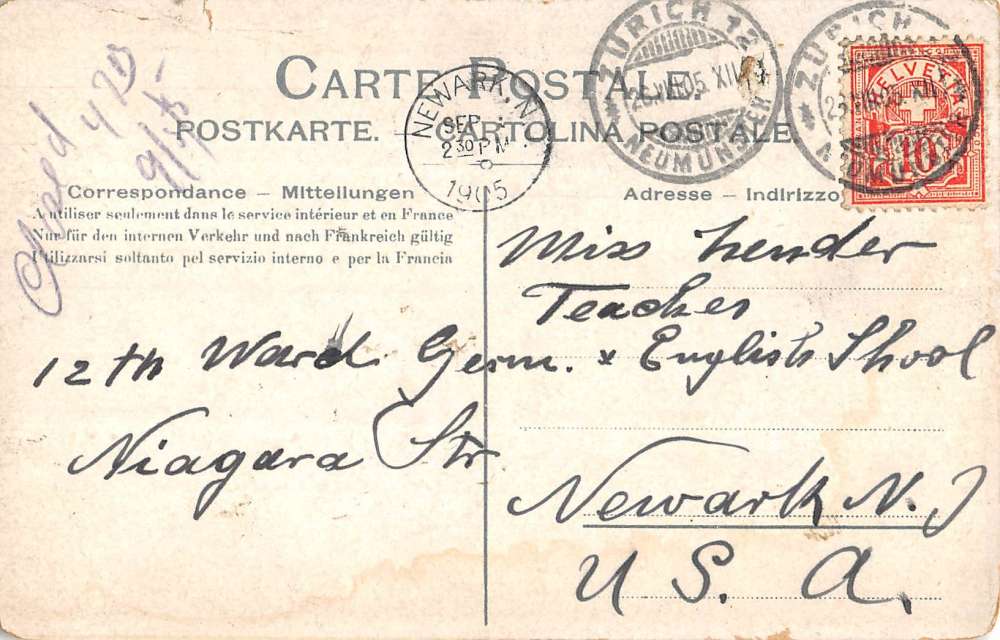 CARTE POSTALE.
POSTKARTE. – CARTOLINA POSTALE.
NEWARK, N.J.
SEP
2 30 PM
1905
ZÜRICH 12
NEUMÜNSTER
HELVETIA
10
Correspondance – Mitteilungen
A utiliser seulement dans le service intérieur et en France
Nur für den internen Verkehr und nach Frankreich gültig
Utilizzarsi soltanto pel servizio interno e per la Francia
Adresse – Indirizzo
Miss Lender
Teacher
12th Ward Germ. & English Shool
Niagara Str
Newark N. J
U. S. A.